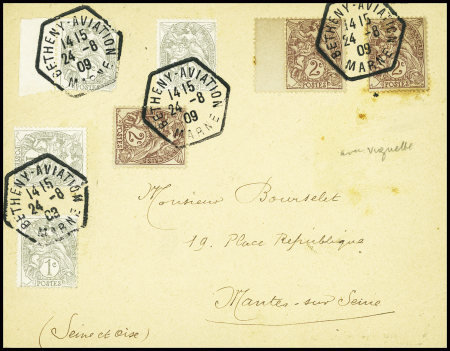 BETHENY-AVIATION
14 15
24 -8
09
MARNE
POSTES
BETHENY-AVIATION
14 15
24 -8
09
MARNE
2c
POSTES
BETHENY-AVIATION
14 15
24 -8
09
MARNE
2c
POSTES
2c
POSTES
BETHENY-AVIATION
14 15
24 -8
09
MARNE
1c
POSTES
avec vignette
Monsieur Bourselet
19. Place République
Mantes-sur-Seine
(Seine et Oise)